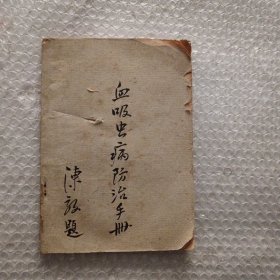 血吸虫病防治手册
陈毅题